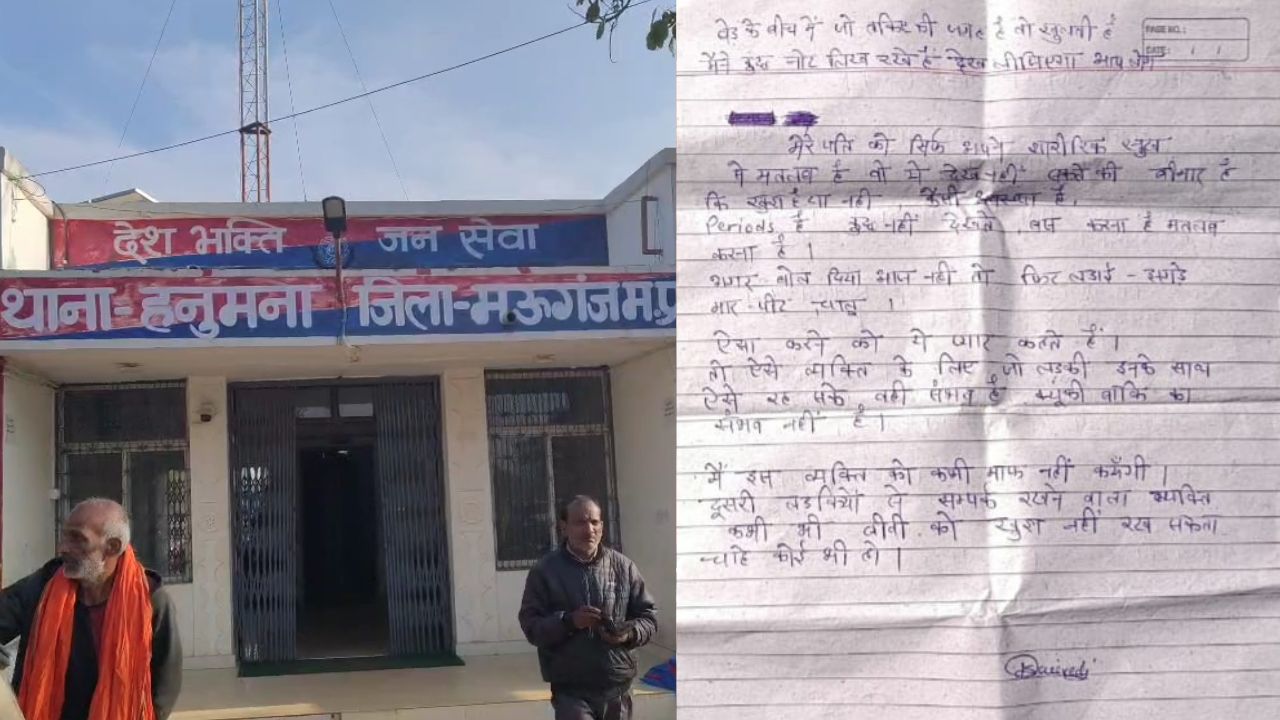 देश भक्ति जन सेवा
थाना-हनुमना जिला-मऊगंज म.प्र
बेड के बीच में जो तकिए की जगह है वो खुलती है
PAGE NO.:
DATE: / /
मैंने कुछ नोट लिख रखे हैं देख लीजिएगा आप लोग
मेरे पति को सिर्फ अपने शारीरिक सुख
से मतलब है वो ये देख नहीं सकते की बीमार है
कि खुश है या नहीं, कैसी अवस्था है,
Periods है कुछ नहीं देखते, बस करना है मतलब
करना है।
अगर बोल दिया आज नहीं तो फिर लड़ाई - झगड़े
मार-पीट चालू।
ऐसा करने को ये प्यार कहते हैं।
तो ऐसे व्यक्ति के लिए जो लड़की इनके साथ
ऐसे रह सके वही संभव है क्यूंकी बाकि का
संभव नहीं है।
मैं इस व्यक्ति को कभी माफ नहीं करूँगी।
दूसरी लड़कियों से सम्पर्क रखने वाला व्यक्ति
कभी भी बीवी को खुश नहीं रख सकता
चाहे कोई भी हो।
Dwivedi